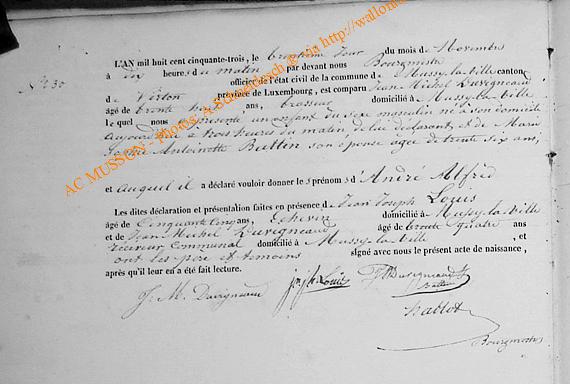 N° 30
L'AN mil huit cent cinquante-trois, le trentième jour du mois de Novembre
à dix heures du matin par devant nous Bourgmestre
officier de l'état civil de la commune de Mussy-la-Ville canton
de Virton province de Luxembourg, est comparu Jean Michel Duvigneaud
âgé de trente ans, brasseur domicilié à Mussy-la-Ville
Lequel nous a présenté un enfant du sexe masculin né à son domicile
aujourd'hui à trois heures du matin, de lui déclarant et de Marie
Antoinette Battin son épouse agée de trente six ans,
et auquel il a déclaré vouloir donner les prénoms d'André Alfred
Les dites déclaration et présentation faites en présence de Jean Joseph Louis
âgé de Cinquante Cinq ans, Echevin domicilié à Mussy-la-Ville
et de Jean Michel Duvigneaud âgé de trente quatre ans
receveur Communal domicilié à Mussy-la-Ville, et
ont les père et témoins signé avec nous le présent acte de naissance,
après qu'il leur en a été fait lecture.
J. M. Duvigneaud Jos Jh Louis Duvigneaud
Battin
Hablot
Bourgmestre
AC MUSSON - Photos: A Schmedresch @ via http://wallon